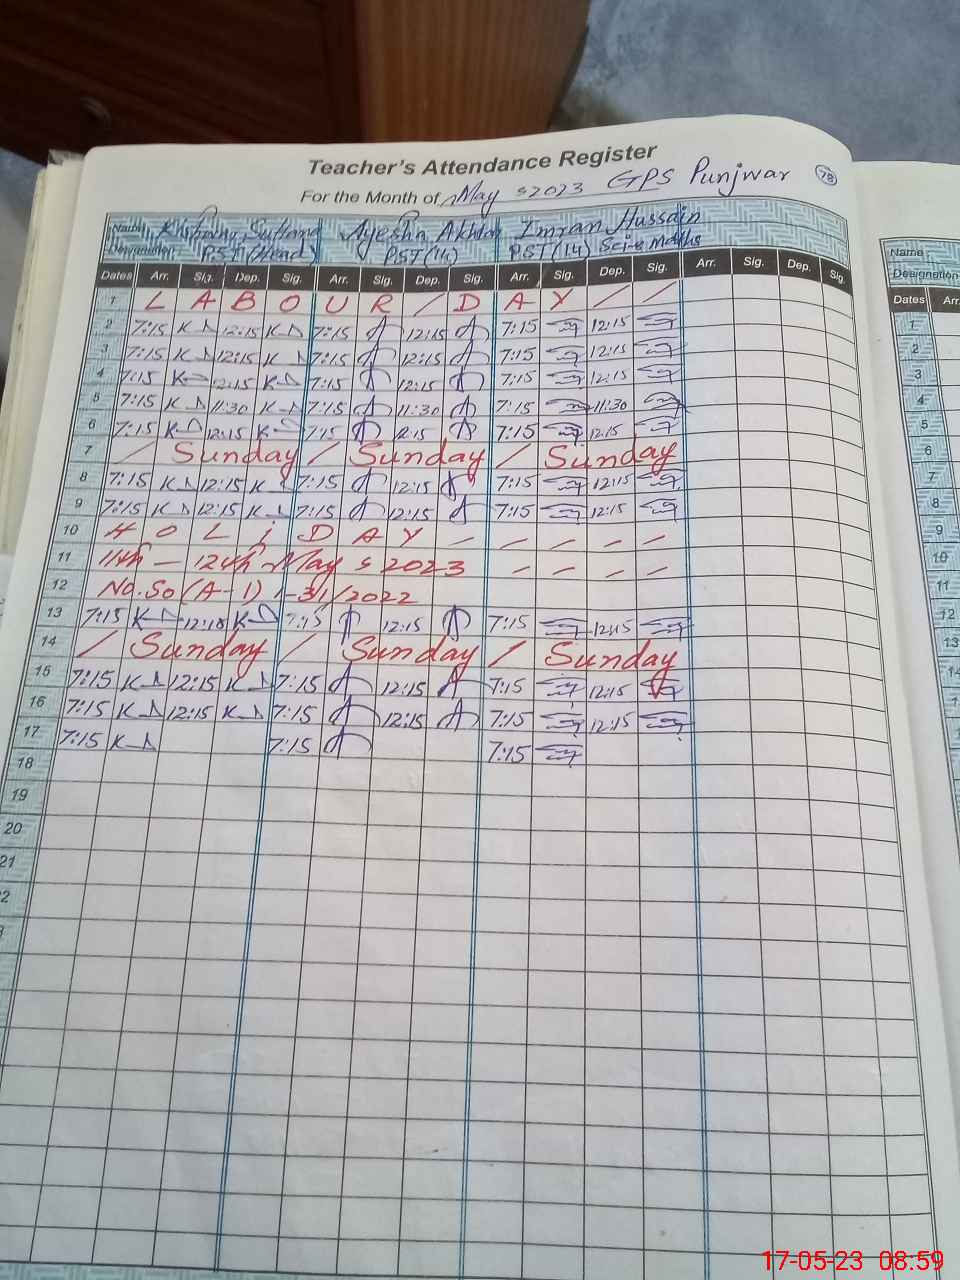 Teacher's Attendance Register
For the Month of May 2023 GPS Punjwar 78
Name Sultana Ayesha Akhtar Imran Hussain
Designation PST (Head) PST (14) PST (14) Sci-e Maths
Dates Arr. Sig. Dep. Sig. Arr. Sig. Dep. Sig. Arr. Sig. Dep. Sig. Arr. Sig. Dep. Sig.
1 L A B O U R / D A Y / /
2 7:15 12:15 7:15 12:15 7:15 12:15
3 7:15 12:15 7:15 12:15 7:15 12:15
4 7:15 12:15 7:15 12:15 7:15 12:15
5 7:15 11:30 7:15 11:30 7:15 11:30
6 7:15 12:15 7:15 12:15 7:15 12:15
7 / Sunday / Sunday / Sunday
8 7:15 12:15 7:15 12:15 7:15 12:15
9 7:15 12:15 7:15 12:15 7:15 12:15
10 H O L i D A Y – – – – –
11 11th – 12th May 2023 – – – –
12 No. So (A-1) 1-31/2022
13 7:15 7:15 12:15 7:15 12:15
14 / Sunday / Sunday / Sunday
15 7:15 12:15 7:15 12:15 7:15 12:15
16 7:15 12:15 7:15 12:15 7:15 12:15
17 7:15 7:15 7:15
18
19
20
21
Name
Designation
Dates Arr.
1
2
3
4
5
6
7
8
9
10
11
12
13
14
17-05-23 08:59